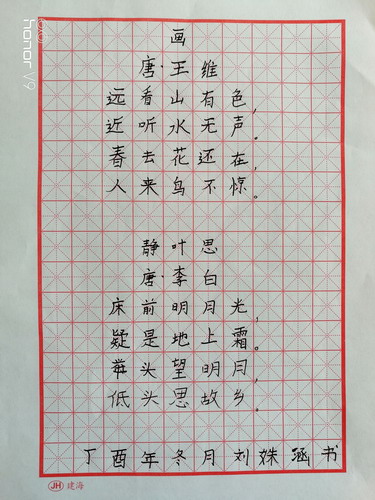 画
唐·王维
远看山有色，
近听水无声。
春去花还在，
人来鸟不惊。
静叶思
唐·李白
床前明月光，
疑是地上霜。
举头望明月，
低头思故乡。
丁酉年冬月刘姝涵书
JH 建海
honor V9